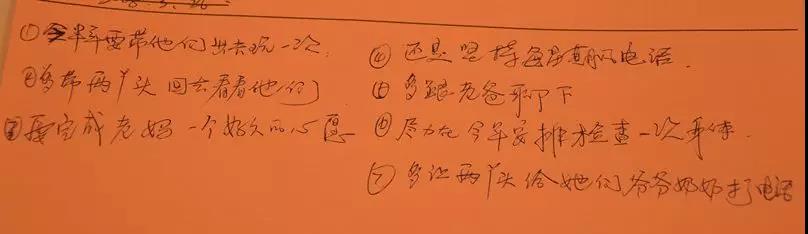 ① 半年要带他们出去玩一次.
②多带两丫头回去看看他们
③要完成老妈一个好久的心愿
④ 还是坚持每 电话.
⑤ 多跟老爸聊下
⑥ 尽力在今年安排检查一次身体.
⑦ 多让两丫头给她们爷爷奶奶打电话